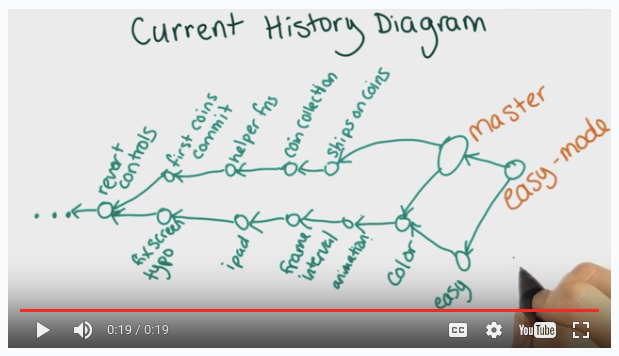 Current History Diagram
revert
controls
first coins
commit
helper fns
coin collection
ships on coins
master
easy-mode
fix screen
typo
ipad
frame
interval
animation
color
easy
0:19 / 0:19
CC
YouTube